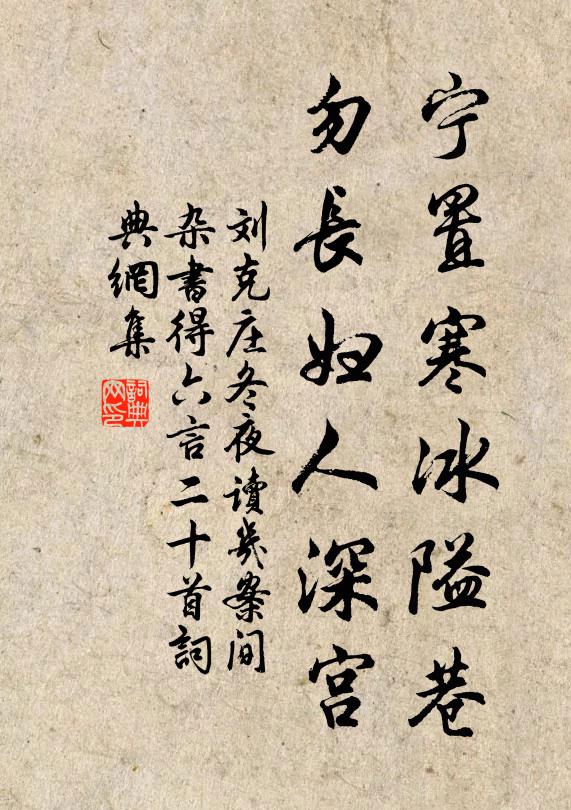 宁置寒冰隘巷
勿長妇人深宫
刘克庄冬夜讀幾案间
杂書得六言二十首詞
典網集
詞典网印